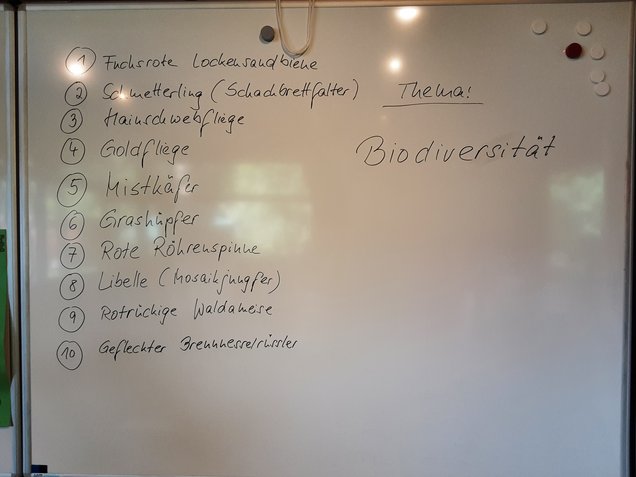 1 Fuchsrote Lockensandbiene
2 Schmetterling (Schachbrettfalter)
3 Hainschwebfliege
4 Goldfliege
5 Mistkäfer
6 Grashüpfer
7 Rote Röhrenspinne
8 Libelle (Mosaikjungfer)
9 Rotrückige Waldameise
10 Gefleckter Brennnesselrüssler
Thema:
Biodiversität